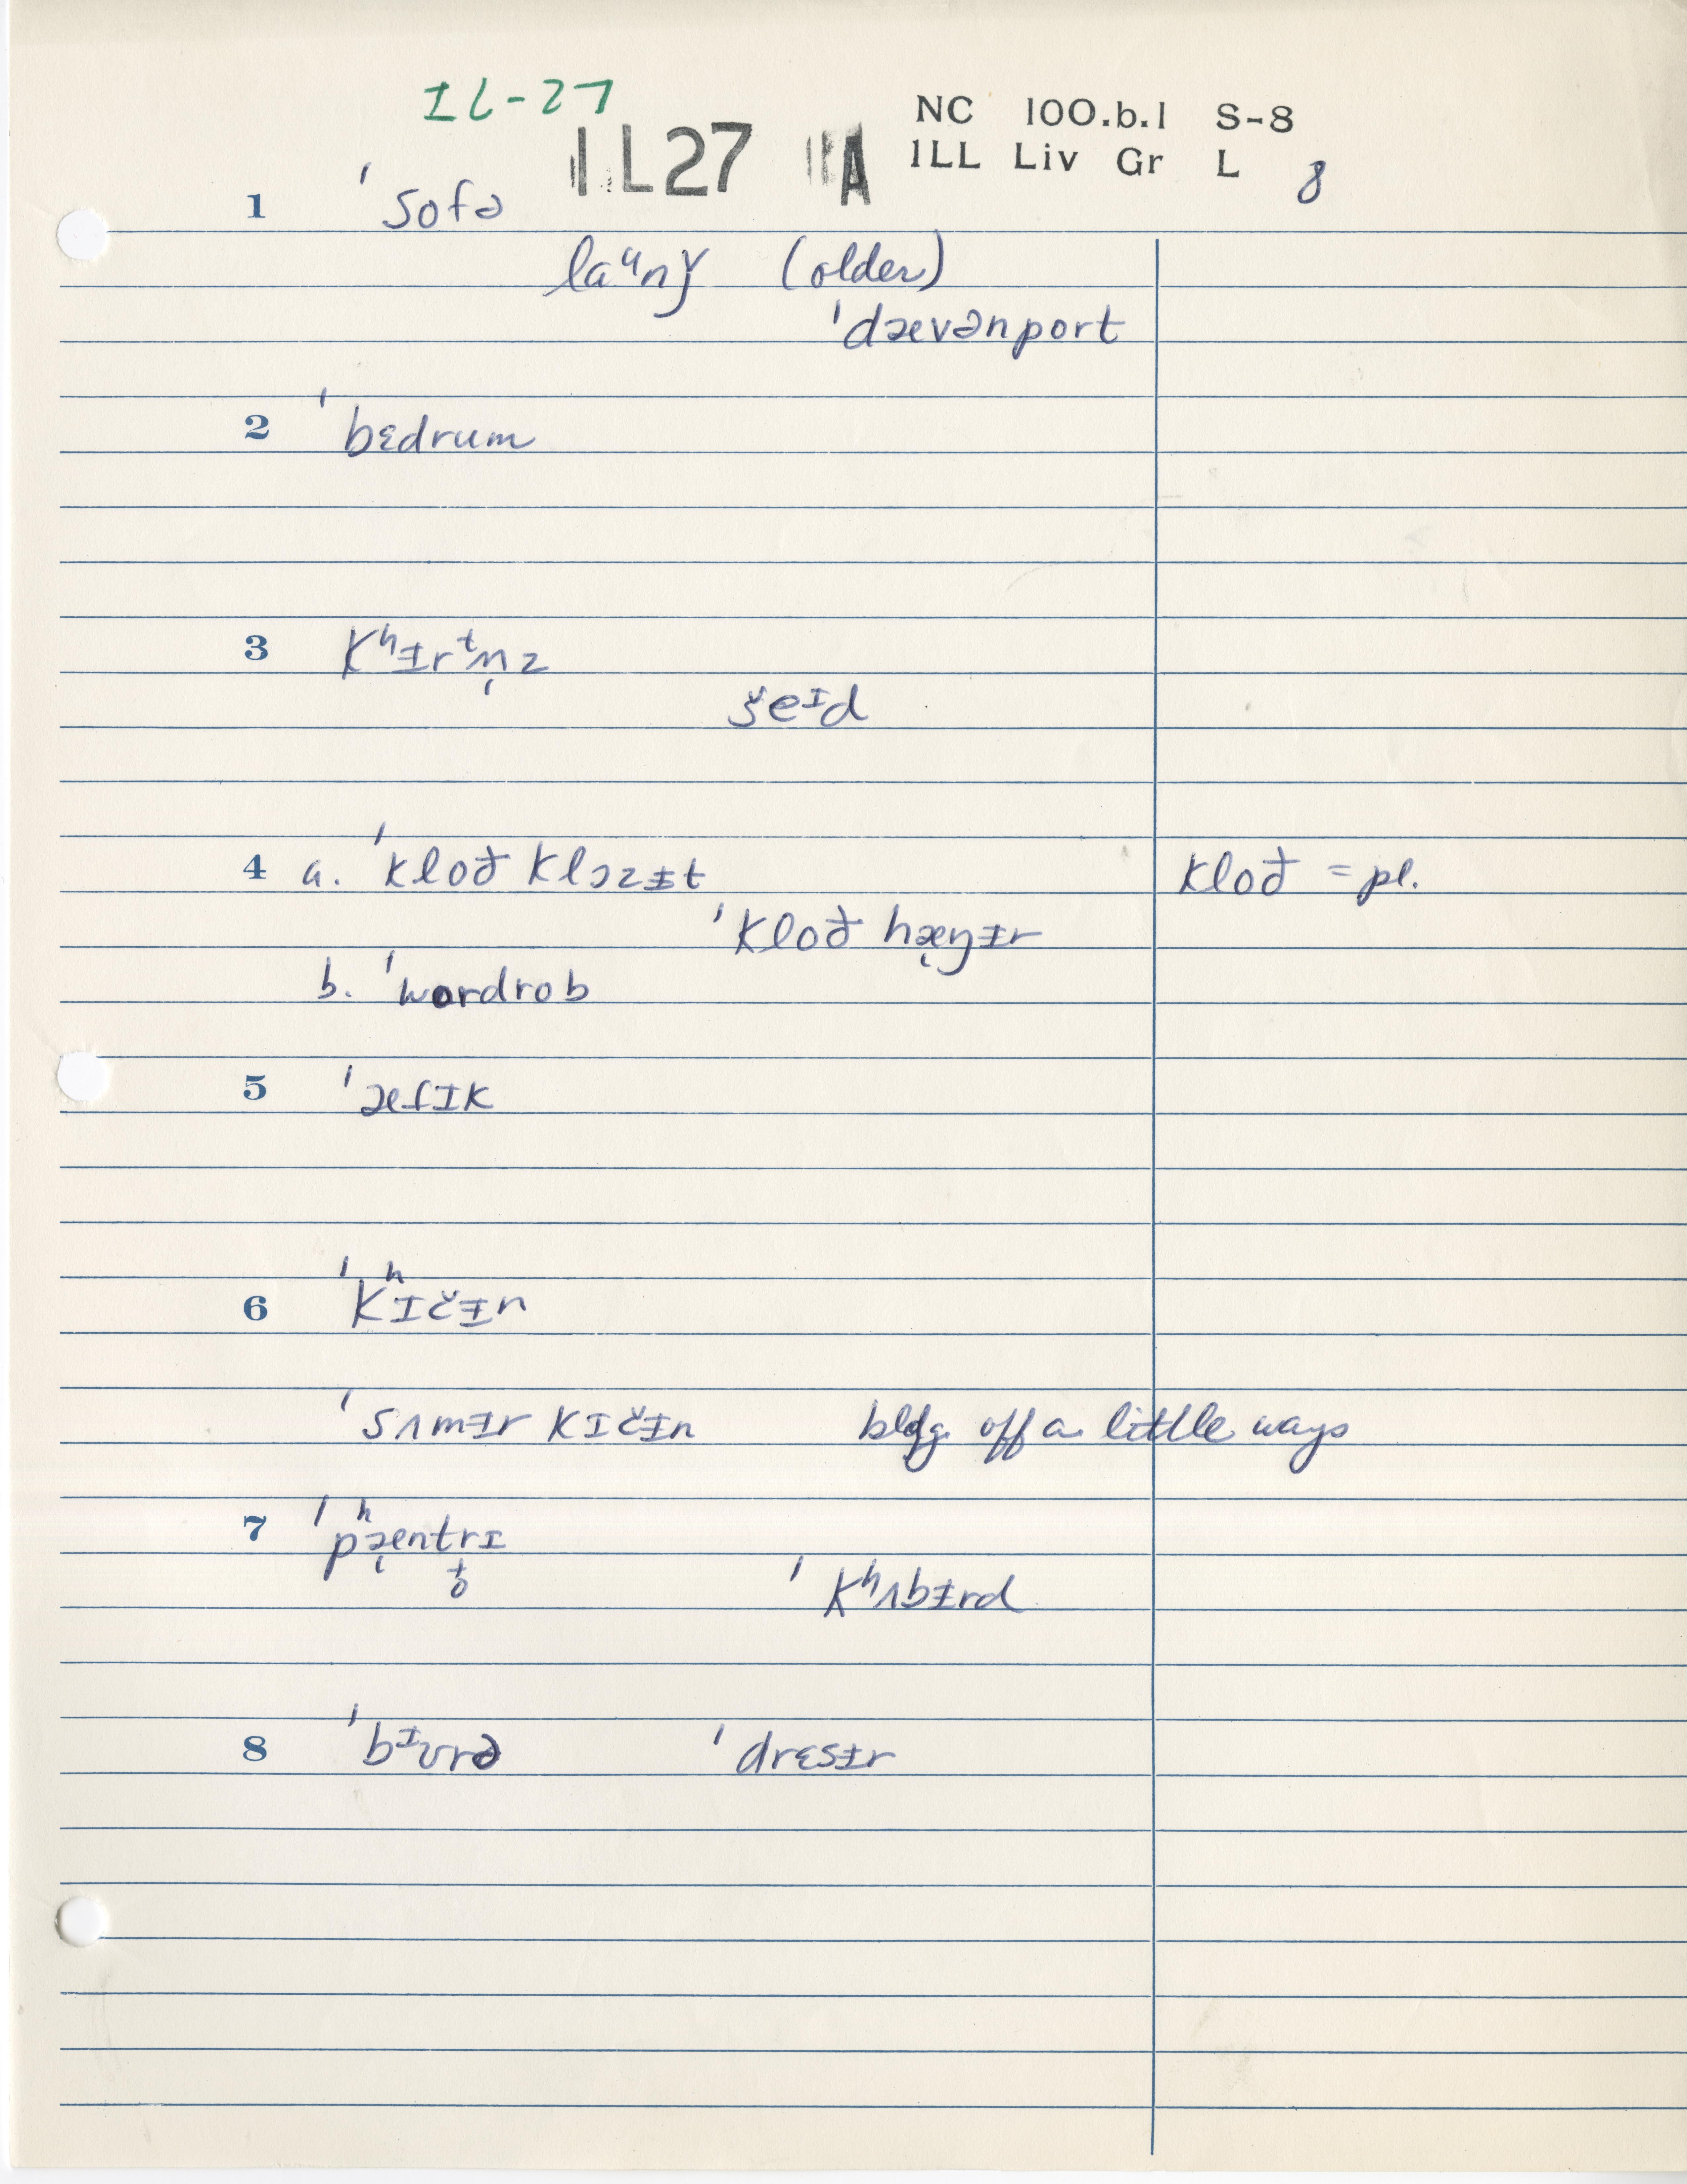 IL-27
IL27 A
NC 100.b.1 S-8
ILL Liv Gr L 8
1 ˈsofə
laᵘnǰ (older)
ˈdævənport
2 ˈbɛdrum
3 kʰɨrᵗn̩z
šeᴵd
4 a. ˈkloð klɔzɨt kloð = pl.
ˈkloð hæ̨ŋɨr
b. ˈwordrob
5 ˈæfɪk
6 ˈkʰɪčɨn
ˈsʌmɨr kɪčɨn bldg. off a little ways
7 ˈpʰæ̨ntrɪ
ˈkʰʌbɨrd
8 ˈbᴵʊrə ˈdrɛsɨr